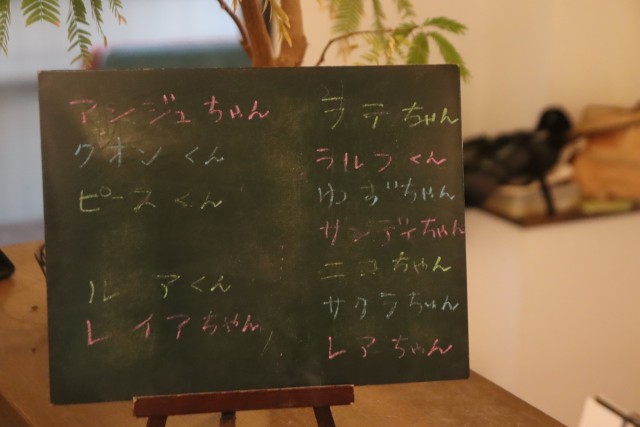 アンジュちゃん
クオンくん
ピースくん
ルアくん
レイアちゃん
ラテちゃん
ラルフくん
ゆずちゃん
サンディちゃん
ニコちゃん
サクラちゃん
レアちゃん